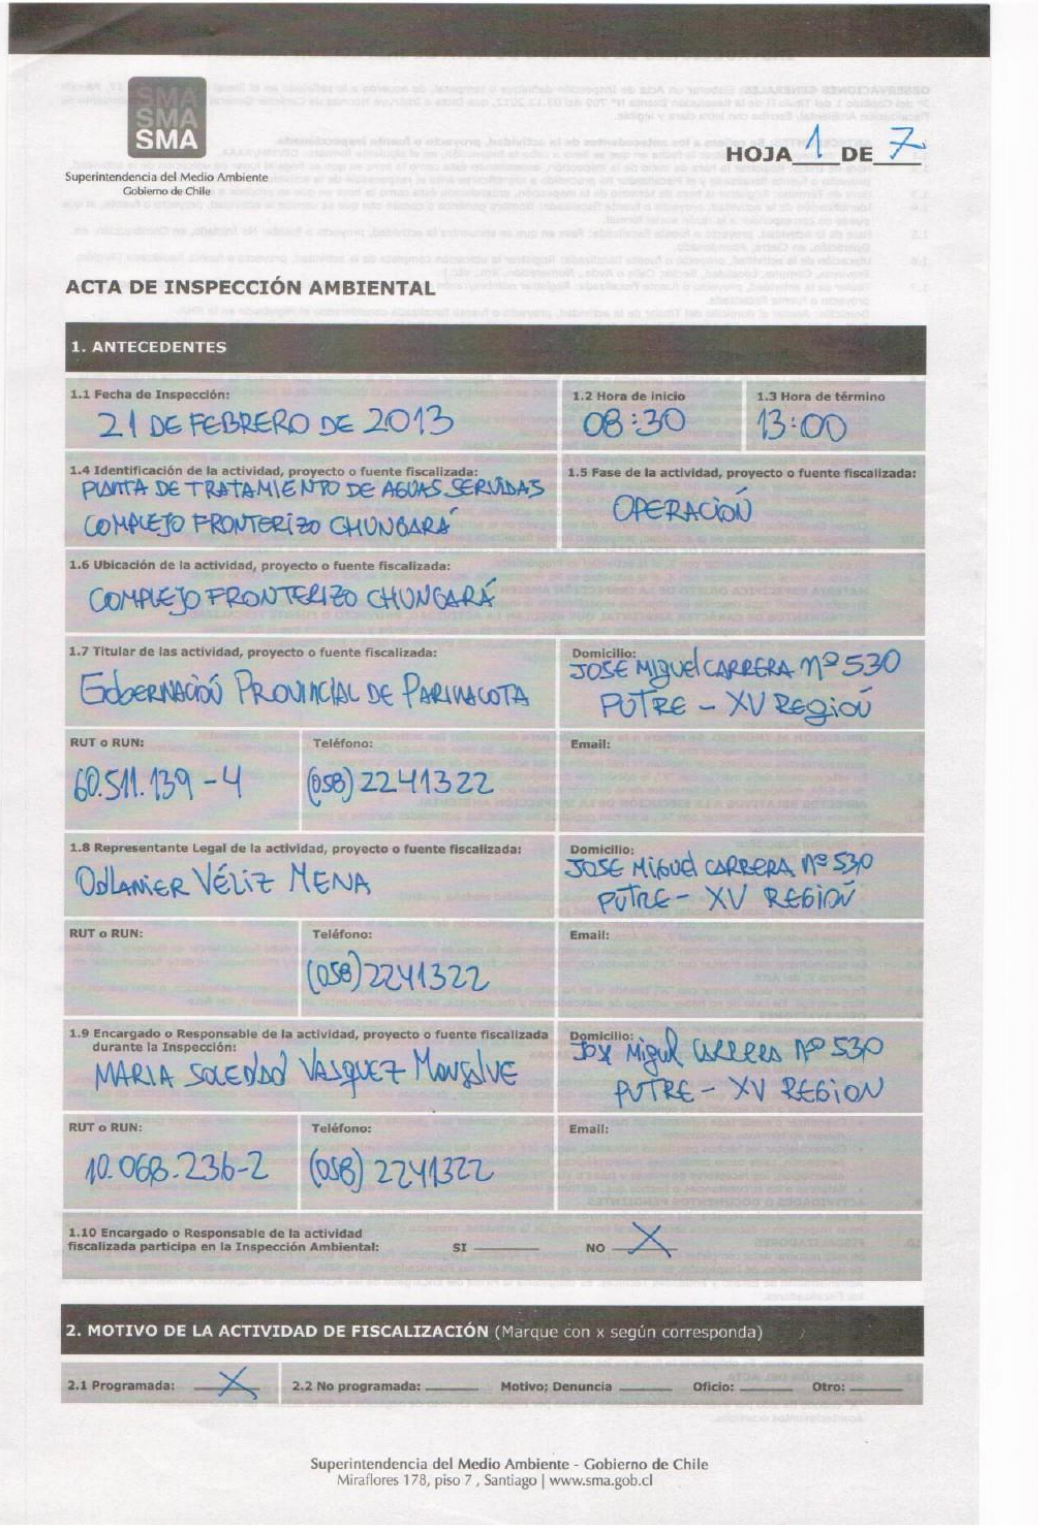 SMA
SMA
SMA
Superintendencia del Medio Ambiente
Gobierno de Chile
HOJA 1 DE 7
ACTA DE INSPECCIÓN AMBIENTAL
1. ANTECEDENTES
1.1 Fecha de Inspección:
21 DE FEBRERO DE 2013
1.2 Hora de inicio
08:30
1.3 Hora de término
13:00
1.4 Identificación de la actividad, proyecto o fuente fiscalizada:
PLANTA DE TRATAMIENTO DE AGUAS SERVIDAS
COMPLEJO FRONTERIZO CHUNGARÁ
1.5 Fase de la actividad, proyecto o fuente fiscalizada:
OPERACIÓN
1.6 Ubicación de la actividad, proyecto o fuente fiscalizada:
COMPLEJO FRONTERIZO CHUNGARÁ
1.7 Titular de las actividad, proyecto o fuente fiscalizada:
GOBERNACIÓN PROVINCIAL DE PARINACOTA
Domicilio:
JOSE MIGUEL CARRERA Nº 530
PUTRE - XV REGIÓN
RUT o RUN:
60.511.139-4
Teléfono:
(058) 2241322
Email:
1.8 Representante Legal de la actividad, proyecto o fuente fiscalizada:
ODLANIER VÉLIZ MENA
Domicilio:
JOSE MIGUEL CARRERA Nº 530
PUTRE - XV REGIÓN
RUT o RUN:
Teléfono:
(058) 2241322
Email:
1.9 Encargado o Responsable de la actividad, proyecto o fuente fiscalizada
durante la Inspección:
MARIA SOLEDAD VASQUEZ MONSALVE
Domicilio:
JOSE MIGUEL CARRERA Nº 530
PUTRE - XV REGION
RUT o RUN:
10.068.236-2
Teléfono:
(058) 2241322
Email:
1.10 Encargado o Responsable de la actividad
fiscalizada participa en la Inspección Ambiental: SI ____ NO X
2. MOTIVO DE LA ACTIVIDAD DE FISCALIZACIÓN (Marque con x según corresponda)
2.1 Programada: X 2.2 No programada: ____ Motivo; Denuncia ____ Oficio: ____ Otro: ____
Superintendencia del Medio Ambiente - Gobierno de Chile
Miraflores 178, piso 7 , Santiago | www.sma.gob.cl